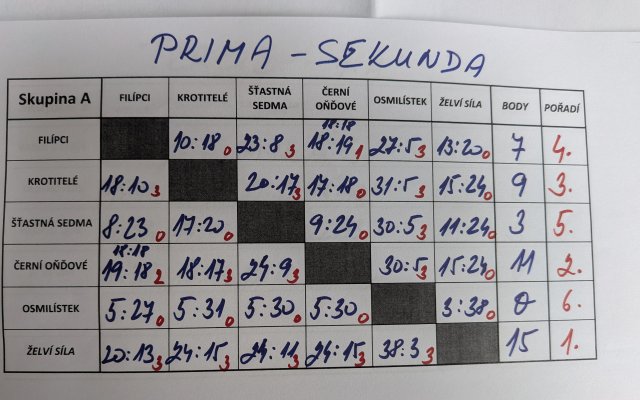 PRIMA - SEKUNDA
Skupina A FILÍPCI KROTITELÉ ŠŤASTNÁ SEDMA ČERNÍ OŇĎOVÉ OSMILÍSTEK ŽELVÍ SÍLA BODY POŘADÍ
FILÍPCI 10:18 0 23:8 3 18:18 18:19 1 27:5 3 13:20 0 7 4.
KROTITELÉ 18:10 3 20:17 3 17:18 0 31:5 3 15:24 0 9 3.
ŠŤASTNÁ SEDMA 8:23 0 17:20 0 9:24 0 30:5 3 11:24 0 3 5.
ČERNÍ OŇĎOVÉ 18:18 19:18 2 18:17 3 24:9 3 30:5 3 15:24 0 11 2.
OSMILÍSTEK 5:27 0 5:31 0 5:30 0 5:30 0 3:38 0 0 6.
ŽELVÍ SÍLA 20:13 3 24:15 3 24:11 3 24:15 3 38:3 3 15 1.